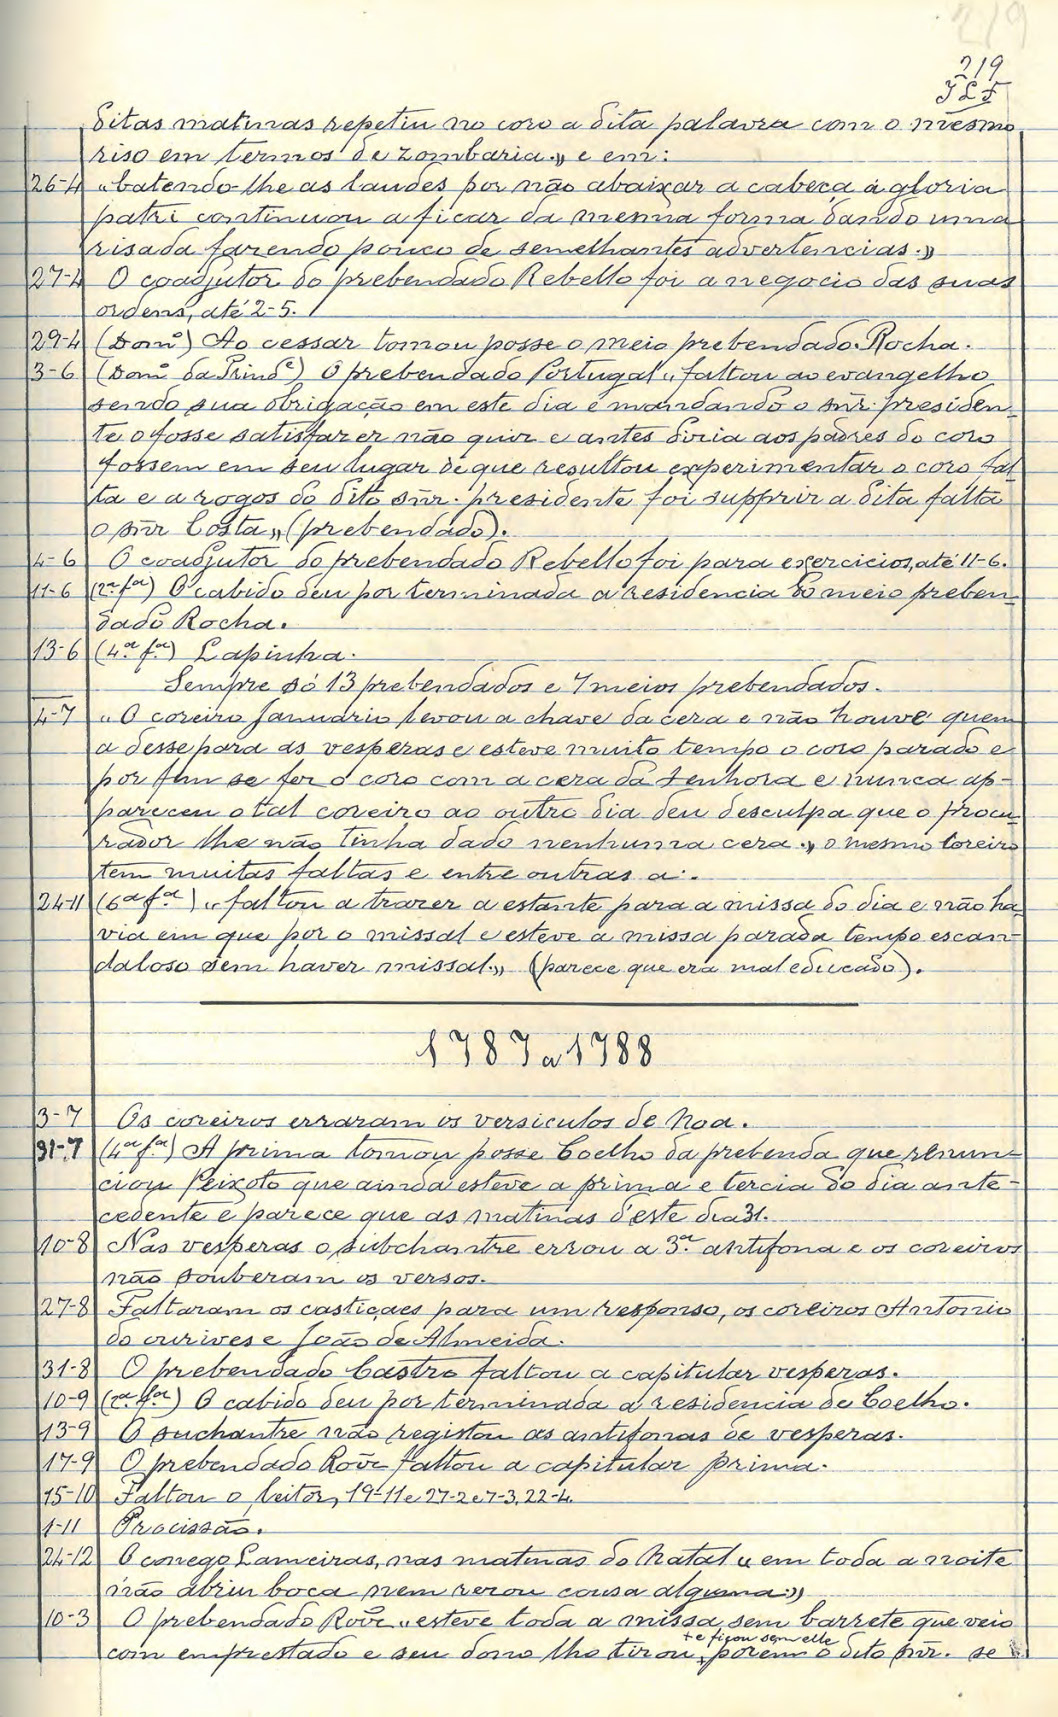 219
219
ditas matinas repetiu no coro a dita palavra com o mesmo
riso em termos de zombaria.» e em:
26-4 «batendo-lhe as laudes por não abaixar a cabeça á gloria
patri continuou a ficar da mesma forma dando uma
risada fazendo pouco de semelhantes advertencias.»
27-4 O coadjutor do prebendado Rebello foi a negocio das suas
ordens, até 2-5.
29-4 (Domº) Ao cessar tomou posse o meio prebendado Rocha.
3-6 (Domº da Trindᵉ) O prebendado Portugal «faltou ao evangelho
sendo sua obrigação em este dia e mandando o snr. presiden
te o fosse satisfazer não quiz e antes dizia aos padres do coro
fossem em seu lugar de que resultou experimentar o coro fal
ta e a rogos do dito snr. presidente foi supprir a dita falta
o snr Costa» (prebendado).
4-6 O coadjutor do prebendado Rebello foi para exercicios, até 11-6.
11-6 (2ª fª) O cabido deu por terminada a residencia do meio preben
dado Rocha.
13-6 (4ª fª) Lapinha.
Sempre só 13 prebendados e 7 meios prebendados.
4-7 «O coreiro Januario levou a chave da cera e não houve quem
a desse para as vesperas e esteve muito tempo o coro parado e
por fim se fez o coro com a cera da Senhora e nunca ap-
pareceu o tal coreiro ao outro dia deu desculpa que o procu
rador lhe não tinha dado nenhuma cera.» o mesmo coreiro
tem muitas faltas e entre outras a:
24-11 (6ª fª) «faltou a trazer a estante para a missa do dia e não ha
via em que por o missal e esteve a missa parada tempo escan-
daloso sem haver missal.» (parece que era mal educado).
1787 a 1788
3-7 Os coreiros erraram os versiculos de Noa.
31-7 (4ª fª) A prima tomou posse Coelho da prebenda que renun-
ciou Peixoto que ainda esteve a prima e tercia do dia ante-
cedente e parece que as matinas d'este dia 31.
10-8 Nas vesperas o subchantre errou a 3ª antifona e os coreiros
não souberam os versos.
27-8 Faltaram os castiçaes para um responso, os coreiros Antonio
do ourives e João de Almeida.
31-8 O prebendado Castro faltou a capitular vesperas.
10-9 (2ª fª) O cabido deu por terminada a residencia de Coelho.
13-9 O suchantre não registou as antifonas de vesperas.
17-9 O prebendado Roõz faltou a capitular prima.
15-10 Faltou o leitor, 19-11 e 27-2 e 7-3, 22-4.
1-11 Procissão.
24-12 O conego Lameiras, nas matinas do Natal «em toda a noite
não abriu boca nem rezou cousa alguma.»
10-3 O prebendado Roõz «esteve toda a missa sem barrete que veio
+ e ficou sem elle
com emprestado e seu dono lho tirou + porem o dito snr. se